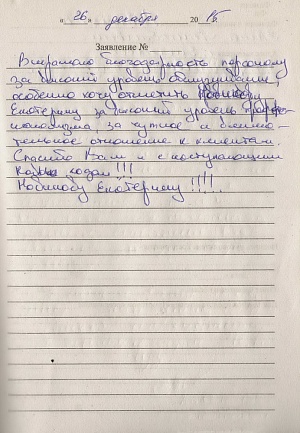 « 26 » декабря 20 15г.
Заявление №
Выражаю благодарность персоналу
за высокий уровень обслуживания,
особенно хочу отметить
Екатерину за высокий уровень профес-
сионализма за чуткое и внима-
тельное отношение к клиентам.
Спасибо Вам и с наступающим
Новым годом!!!
Екатерину!!!!